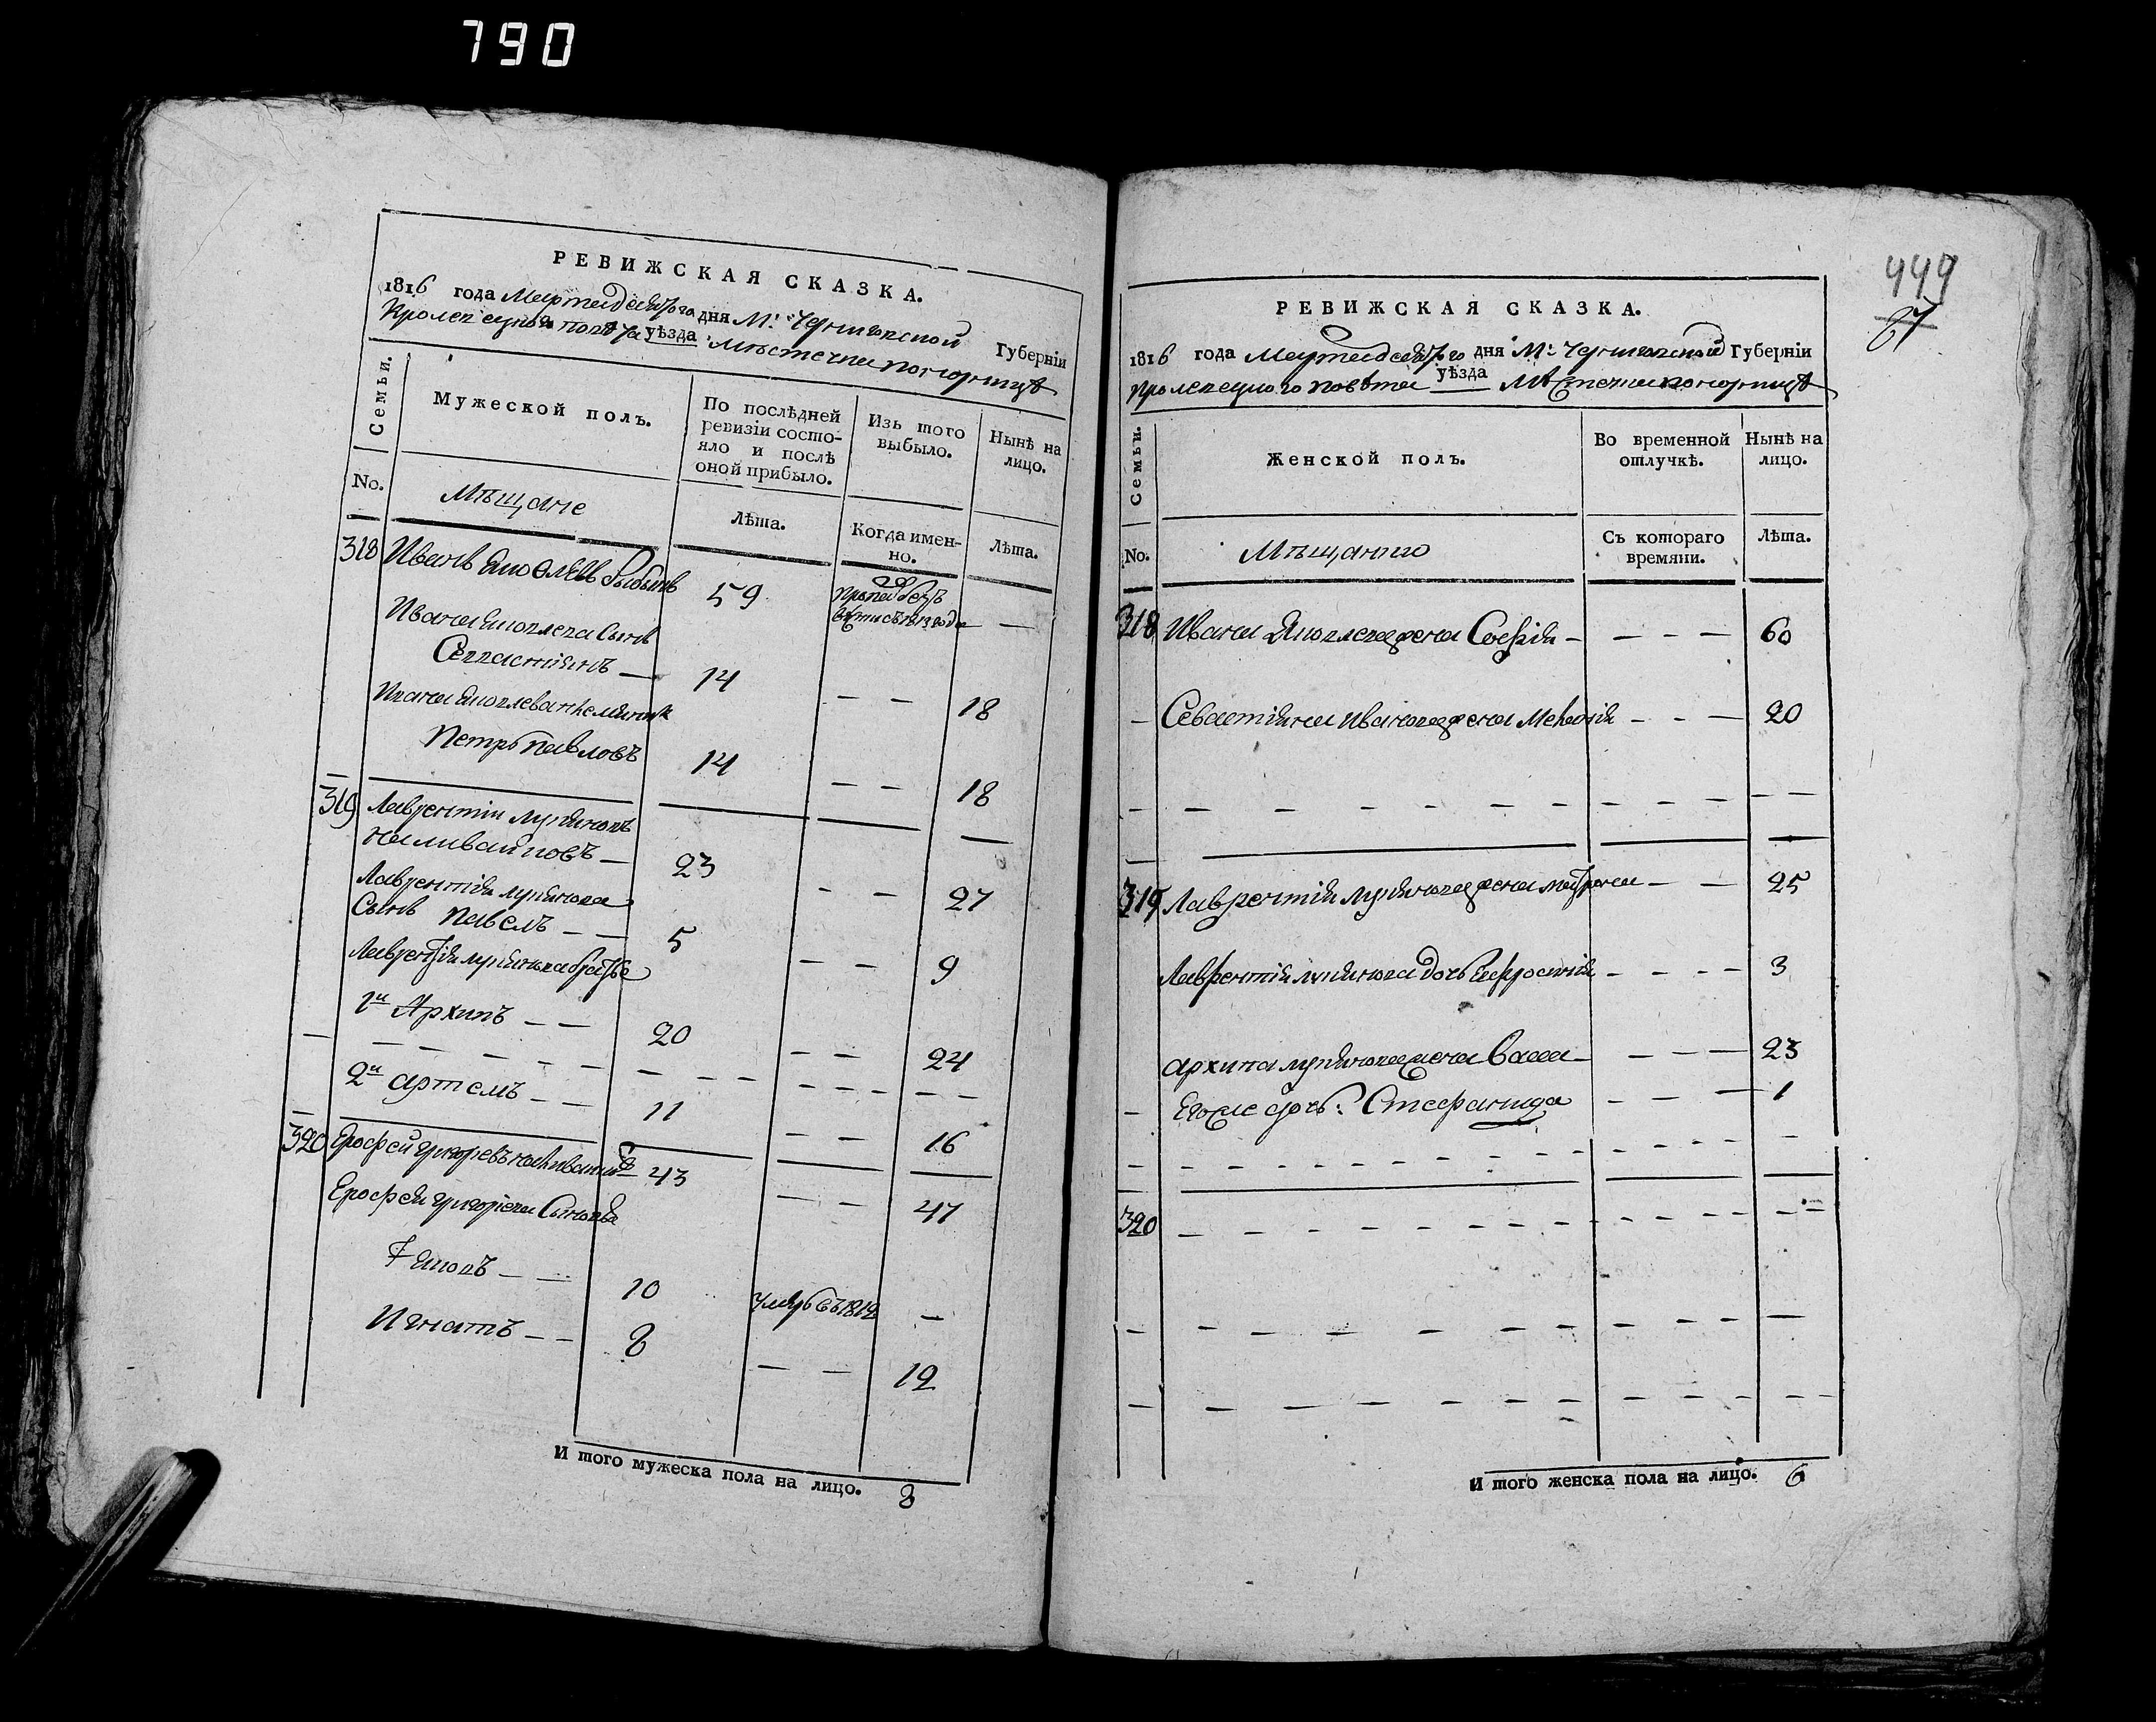 790
РЕВИЖСКАЯ СКАЗКА.
1816 года Марта десятого дня М: Черниговской Губерніи
Кролевецкого повѣта уѣзда Мѣстечка Понорницѣ
Семьи.
Мужеской полъ.
По послѣдней ревизіи состо-
яло и послѣ
оной прибыло.
Изъ того
выбыло.
Нынѣ на
лицо.
No.
Мѣщане
Лѣта.
Когда имен-
но.
Лѣта.
318 Иванъ Яковлевъ 59
Пропал безъ
вѣсти съ 1813 года —
Ивана Яковлева Сынъ
Севастіянъ — 14 — — 18
Ивана Яковлева
Петръ Павловъ 14 — — 18
319 Лаврентій Лукяновъ
Наливайковъ — 23 — — 27
Лаврентія Лукянова
Сынъ Павелъ — — 5 — — 9
Лаврентія Лукянова братья
1й Архипъ — — 20 — — 24
2й Артемъ — — 11 — — 16
320 Ерофей Григоревъ 43 — — 47
Ерофея Григорiева Сыновья
Яковъ — — 10 умеръ въ 1812 —
Игнатъ — — 8 — — 12
И того мужеска пола на лицо. 8
449
67
РЕВИЖСКАЯ СКАЗКА.
1816 года Марта десятого дня М: Черниговской Губерніи
Кролевецкого повѣта уѣзда — Мѣстечка Понорницѣ
Семьи.
Женской полъ.
Во временной
отлучкѣ.
Нынѣ на
лицо.
No.
Мѣщанио
Съ котораго
времяни.
Лѣта.
318 Ивана Яковлева жена Софія — — — — 60
— Севастіяна Иванова жена Меланія — — — 20
319 Лаврентія Лукянова жена Матрона — — 25
Лаврентія Лукянова дочь Ефросинія — — — — 3
Архипа Лукянова жена Васса — — — — 23
— Его же дочь: Стефанида — — — 1
320 — — — — — — — — —
И того женска пола на лицо. 6